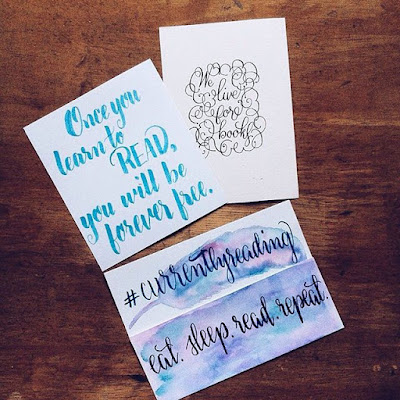 Once you
learn to
READ,
you will be
forever free.
We
live
for
books
#currentlyreading
eat. sleep. read. repeat.